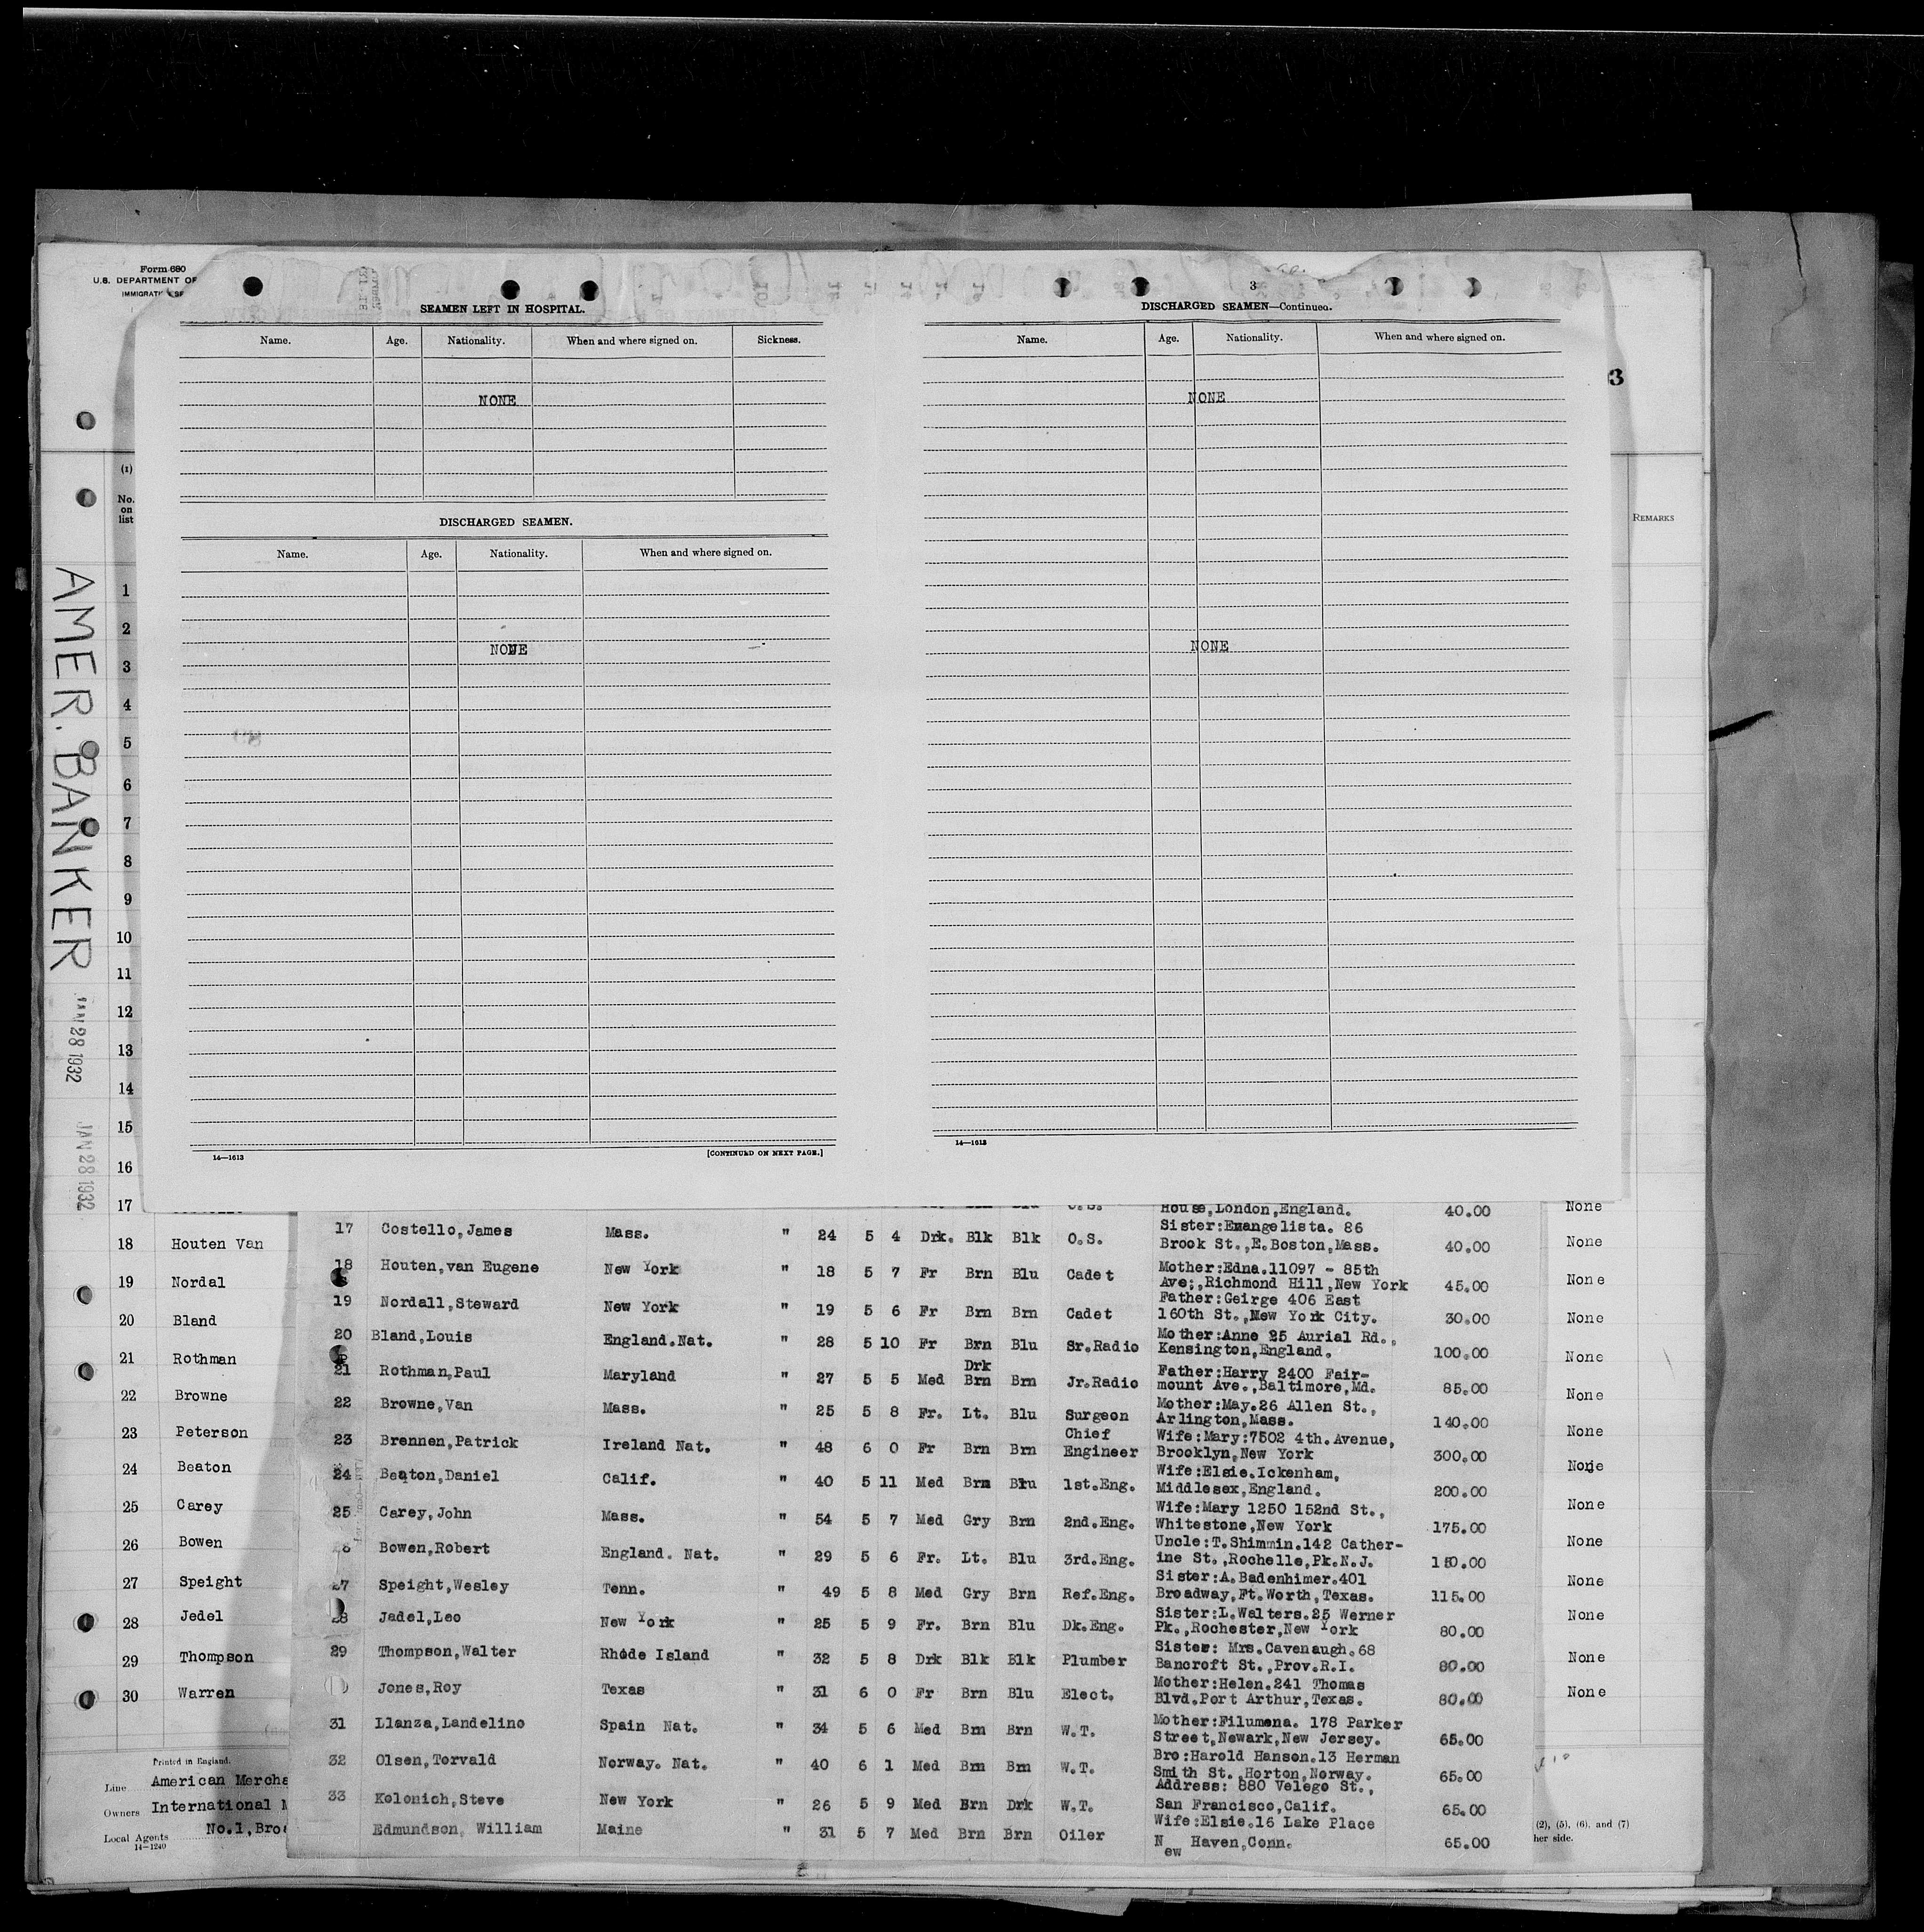 Form 680
U.S. DEPARTMENT OF
SEAMEN LEFT IN HOSPITAL.
Name. Age. Nationality. When and where signed on. Sickness.
NONE
DISCHARGED SEAMEN.
Name. Age. Nationality. When and where signed on.
NONE
14—1613
[CONTINUED ON NEXT PAGE.]
3
DISCHARGED SEAMEN—Continued.
Name. Age. Nationality. When and where signed on.
NONE
NONE
14—1613
3
REMARKS
(1)
No.
on
list
AMER. BANKER
JAN 28 1932
JAN 28 1932
1
2
3
4
5
6
7
8
9
10
11
12
13
14
15
16
17
18 Houten Van
19 Nordal
20 Bland
21 Rothman
22 Browne
23 Peterson
24 Beaton
25 Carey
26 Bowen
27 Speight
28 Jedel
29 Thompson
30 Warren
Printed in England.
Line American Mercha
Owners International M
No.1,Broa
Local Agents
14—1240
House,London,England. 40.00
17 Costello,James Mass. " 24 5 4 Drk. Blk Blk O.S. Sister:Evangelista. 86
Brook St.,E.Boston,Mass. 40.00
18 Houten,van Eugene New York " 18 5 7 Fr Brn Blu Cadet Mother:Edna.11097 - 85th
Ave;,Richmond Hill,New York 45.00
19 Nordall,Steward New York " 19 5 6 Fr Brn Brn Cadet Father:Geirge 406 East
160th St.,New York City. 30.00
20 Bland,Louis England.Nat. " 28 5 10 Fr Brn Blu Sr.Radio Mother:Anne 25 Aurial Rd.,
Kensington,England. 100.00
21 Rothman,Paul Maryland " 27 5 5 Med Drk Brn Brn Jr.Radio Father:Harry 2400 Fair-
mount Ave.,Baltimore,Md. 85.00
22 Browne,Van Mass. " 25 5 8 Fr. Lt. Blu Surgeon Mother:May.26 Allen St.,
Arlington,Mass. 140.00
23 Brennen,Patrick Ireland Nat. " 48 6 0 Fr Brn Brn Chief Engineer Wife:Mary:7502 4th.Avenue,
Brooklyn,New York 300.00
24 Beaton,Daniel Calif. " 40 5 11 Med Brn Blu 1st.Eng. Wife:Elsie.Ickenham,
Middlesex,England. 200.00
25 Carey,John Mass. " 54 5 7 Med Gry Brn 2nd.Eng. Wife:Mary 1250 152nd St.,
Whitestone,New York 175.00
Bowen,Robert England. Nat. " 29 5 6 Fr. Lt. Blu 3rd.Eng. Uncle:T.Shimmin.142 Cather-
ine St.,Rochelle,Pk.N.J. 150.00
27 Speight,Wesley Tenn. " 49 5 8 Med Gry Brn Ref.Eng. Sister:A.Badenhimer.401
Broadway,Ft.Worth,Texas. 115.00
28 Jadel,Leo New York " 25 5 9 Fr. Brn Blu Dk.Eng. Sister:L.Walters.25 Werner
Pk.,Rochester,New York 80.00
29 Thompson,Walter Rhode Island " 32 5 8 Drk Blk Blk Plumber Sister: Mrs.Cavenaugh.68
Bancroft St.,Prov.R.I. 80.00
Jones,Roy Texas " 31 6 0 Fr Brn Blu Elect. Mother:Helen.241 Thomas
Blvd.Port Arthur,Texas. 80.00
31 Llanza,Landelino Spain Nat. " 34 5 6 Med Brn Brn W.T. Mother:Filumena. 178 Parker
Street,Newark,New Jersey. 65.00
32 Olsen,Torvald Norway. Nat. " 40 6 1 Med Brn Brn W.T. Bro:Harold Hanson.13 Herman
Smith St.,Horton,Norway. 65.00
33 Kolonich,Steve New York " 26 5 9 Med Brn Drk W.T. Address: 880 Velego St.,
San Francisco,Calif. 65.00
Edmundson, William Maine " 31 5 7 Med Brn Brn Oiler Wife:Elsie.16 Lake Place
New Haven,Conn. 65.00
None
None
None
None
None
None
None
None
None
None
None
None
None
None
(2), (5), (6), and (7)
her side.